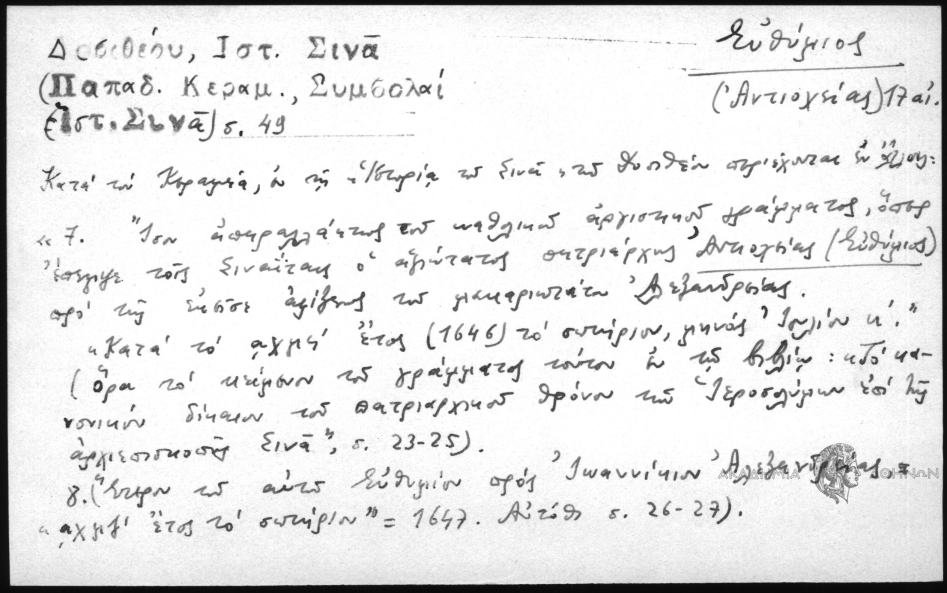 Δοσιθέου, Ιστ. Σινᾶ
(Παπαδ. Κεραμ., Συμβολαί
(Ἱστ. Σινᾶ) σ. 49
Εὐθύμιος
(Ἀντιοχείας) 17 αἰ.
Κατά τόν Κεραμέα, ἐν τῇ «Ἱστορίᾳ τοῦ Σινᾶ» τοῦ Δοσιθέου περιέχονται ἐν
« 7. "Ἴσον ἀπαραλλάκτως τοῦ καθολικοῦ γράμματος, ὅπερ
ἔπεμψε τοῖς Σιναΐταις ὁ ἁγιώτατος πατριάρχης Ἀντιοχείας (Εὐθύμιος)
πρό τῆς ἐκεῖσε ἀφίξεως τοῦ μακαριωτάτου Ἀλεξανδρείας.
«Κατά τό αχμς' ἔτος (1646) τό σωτήριον, μηνός Ἰουλίου κ'."
(Ὅρα τό κείμενον τοῦ γράμματος τούτου ἐν τῷ βιβλίῳ: «Τό κα-
νονικόν δίκαιον τοῦ πατριαρχικοῦ θρόνου τῶν Ἱεροσολύμων ἐπί τῆς
ἀρχιεπισκοπῆς Σινᾶ", σ. 23-25).
8. (Ἕτερον τοῦ αὐτοῦ Εὐθυμίου πρός Ἰωαννίκιον Ἀλεξανδρείας =
« αχμζ' ἔτος τό σωτήριον" = 1647. Αὐτόθι σ. 26-27).
ΑΚΑΔΗΜΙΑ ΑΘΗΝΩΝ